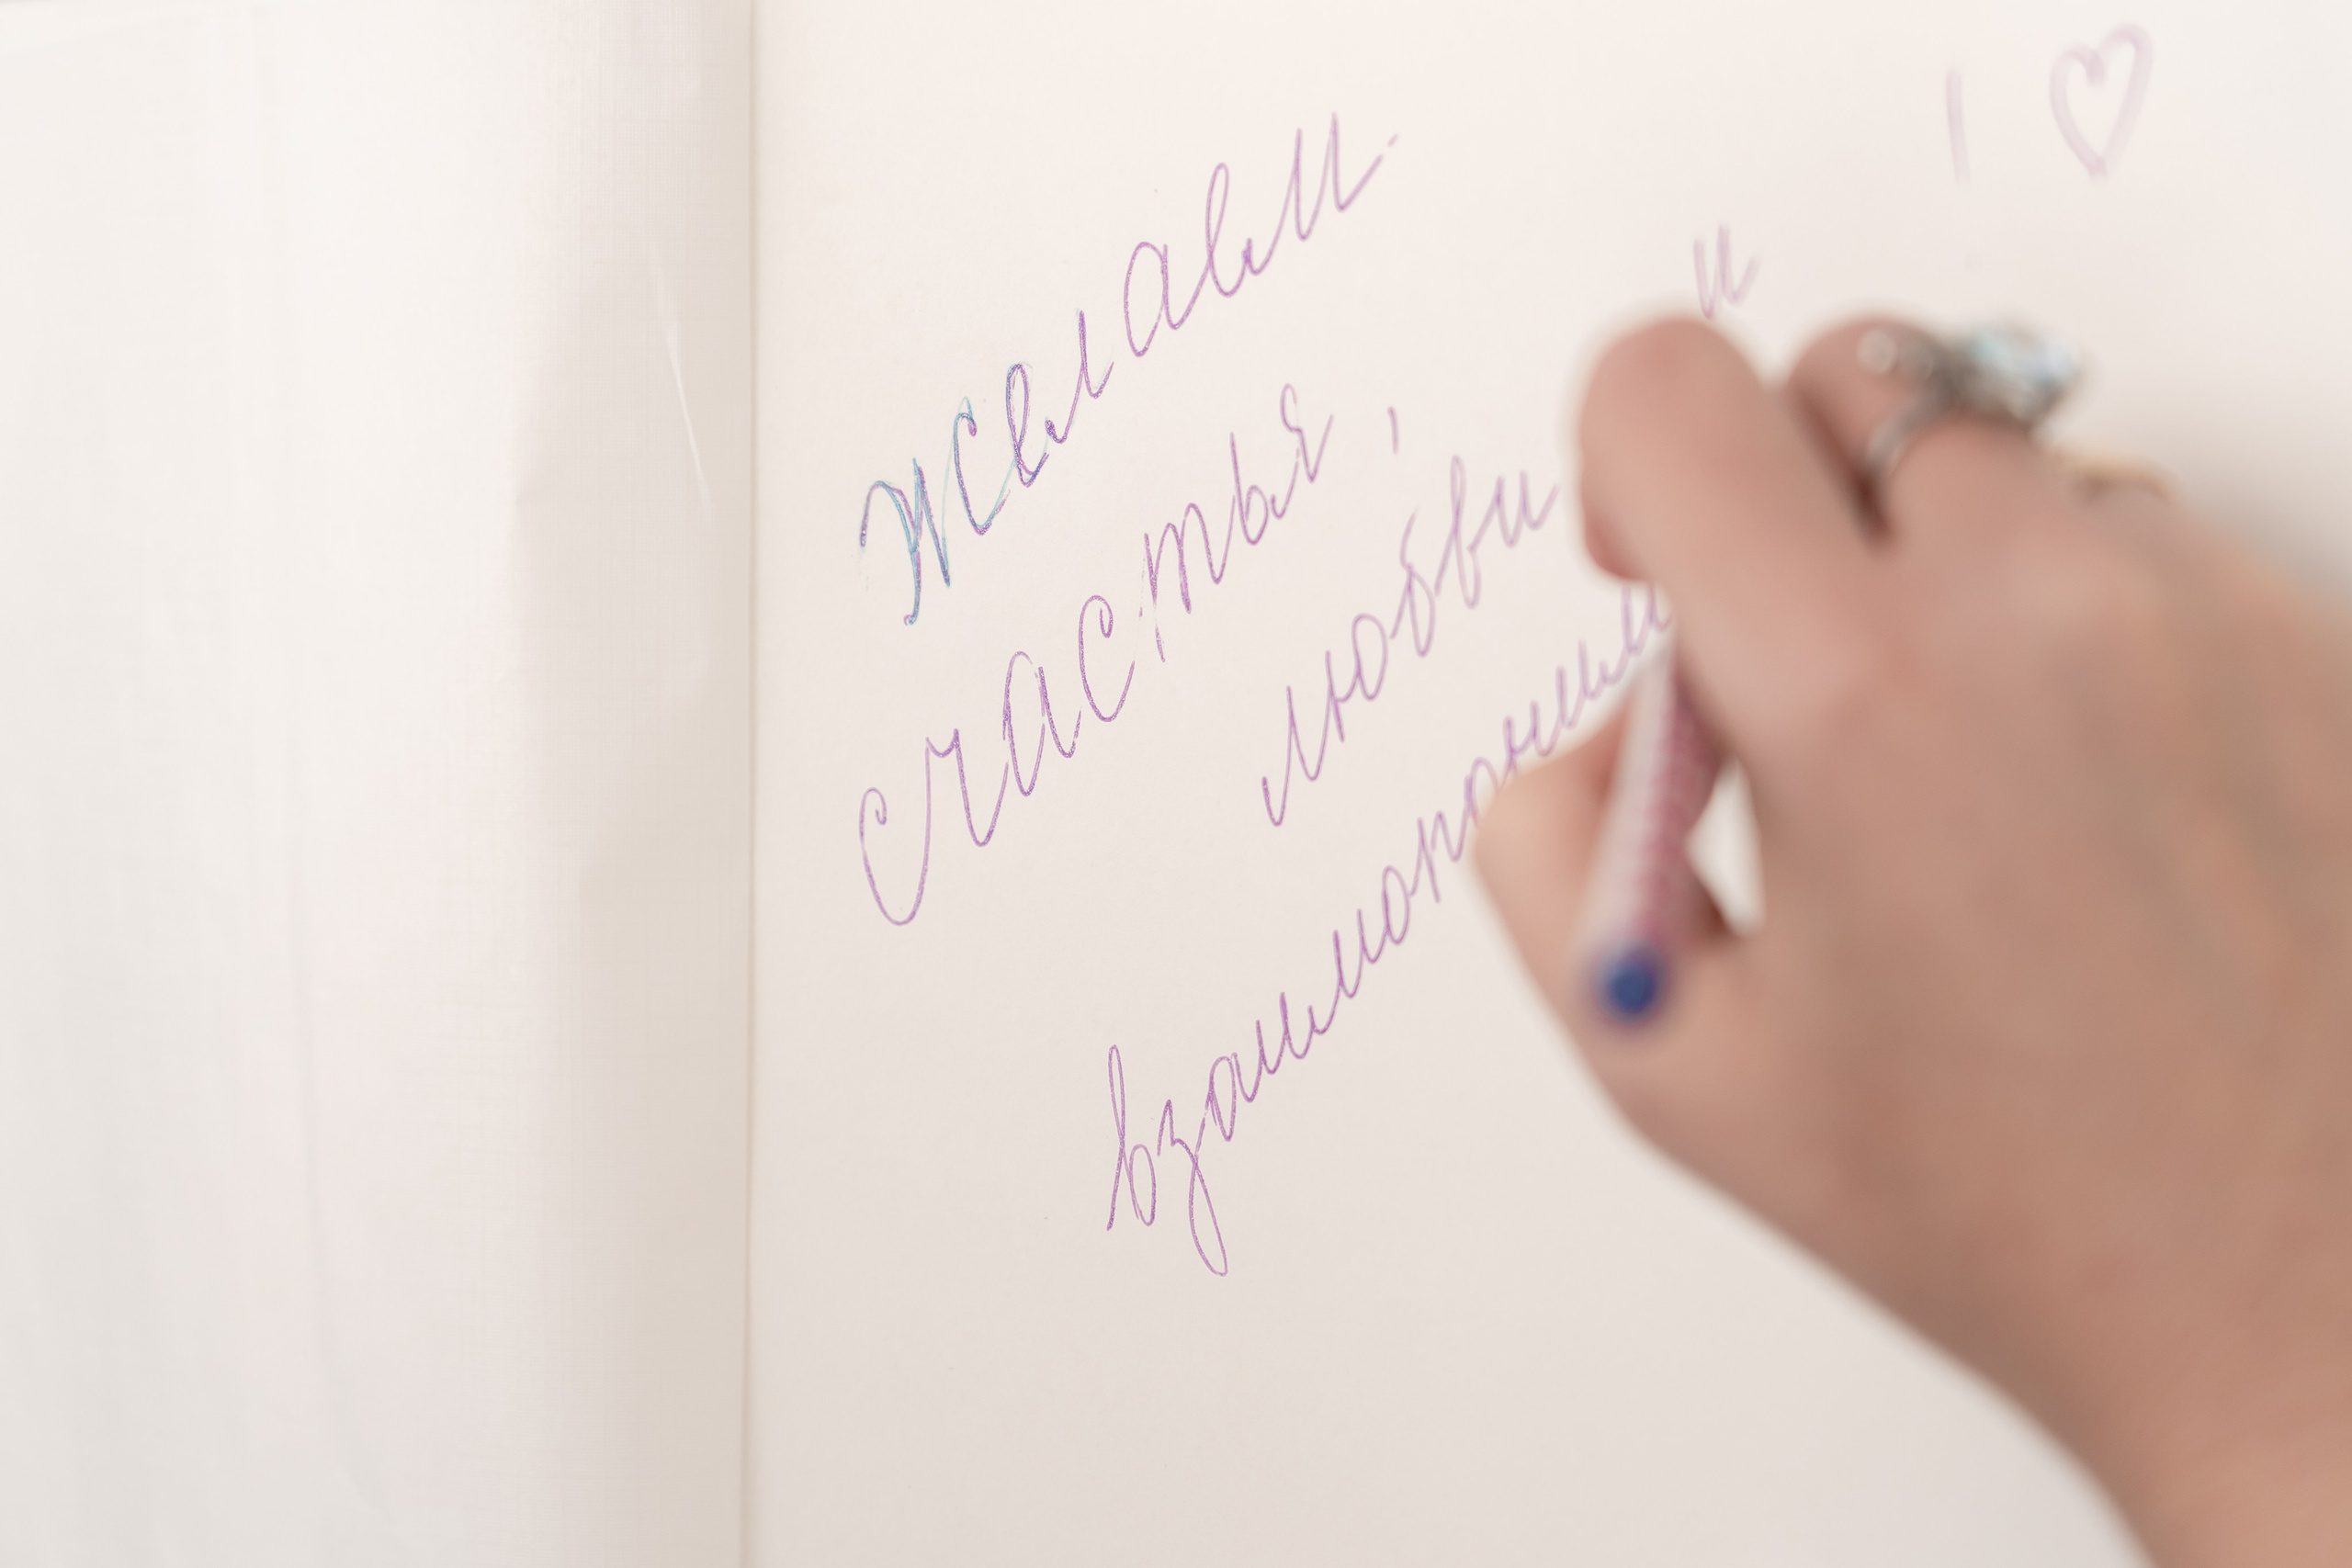 Желаем
счастья,
любви и
взаимопоним ! ♡